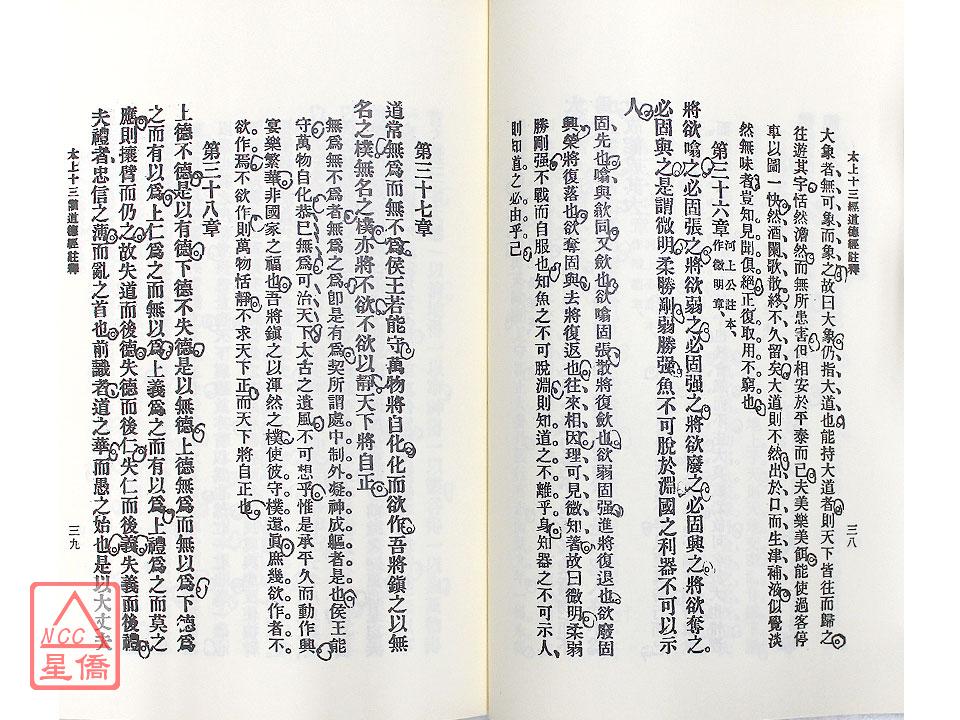 太上十三經道德經註釋
三八
大象者無可象而象之故曰大象仍指大道也能持大道者則天下皆往而歸之
往遊其宇恬然澹然而無所患害但相安於平泰而已夫美樂美餌能使過客停
車以圖一快然酒闌歌散終不久留矣大道則不然出於口而生津補液似覺淡
然無味者豈知見聞俱絕正復取用不窮也
第三十六章
河上公註本、
作微明章、
將欲噏之必固張之將欲弱之必固强之將欲廢之必固興之將欲奪之
必固與之是謂微明柔勝剛弱勝强魚不可脫於淵國之利器不可以示
人
固先也噏與歙同又歛也欲噏固張散將復歛也欲弱固强進將復退也欲廢固
興榮將復落也欲奪固與去將復返也往來相因理可見微知著故曰微明柔弱
勝剛强不戰而自服也知魚之不可脫淵則知道之不離乎身知器之不可示人
則知道之必由乎己
第三十七章
道常無爲而無不爲侯王若能守萬物將自化化而欲作吾將鎭之以無
名之樸無名之樸亦將不欲不欲以靜天下將自正
無爲無不爲者無爲之爲卽是有爲契所謂處中制外凝神成軀者是也侯王能
守萬物自化恭已無爲可治天下太古之遺風不可想乎惟是承平久而動作興
宴樂繁華非國家之福也吾將鎭之以渾然之樸使彼守樸還眞庶幾欲作者不
欲作焉不欲作則萬物恬靜不求天下正而天下將自正也
第三十八章
上德不德是以有德下德不失德是以無德上德無爲而無以爲下德爲
之而有以爲上仁爲之而無以爲上義爲之而有以爲上禮爲之而莫之
應則攘臂而仍之故失道而後德失德而後仁失仁而後義失義而後禮
夫禮者忠信之薄而亂之首也前識者道之華而愚之始也是以大丈夫
太上十三經道德經註釋
三九
NCC
星僑